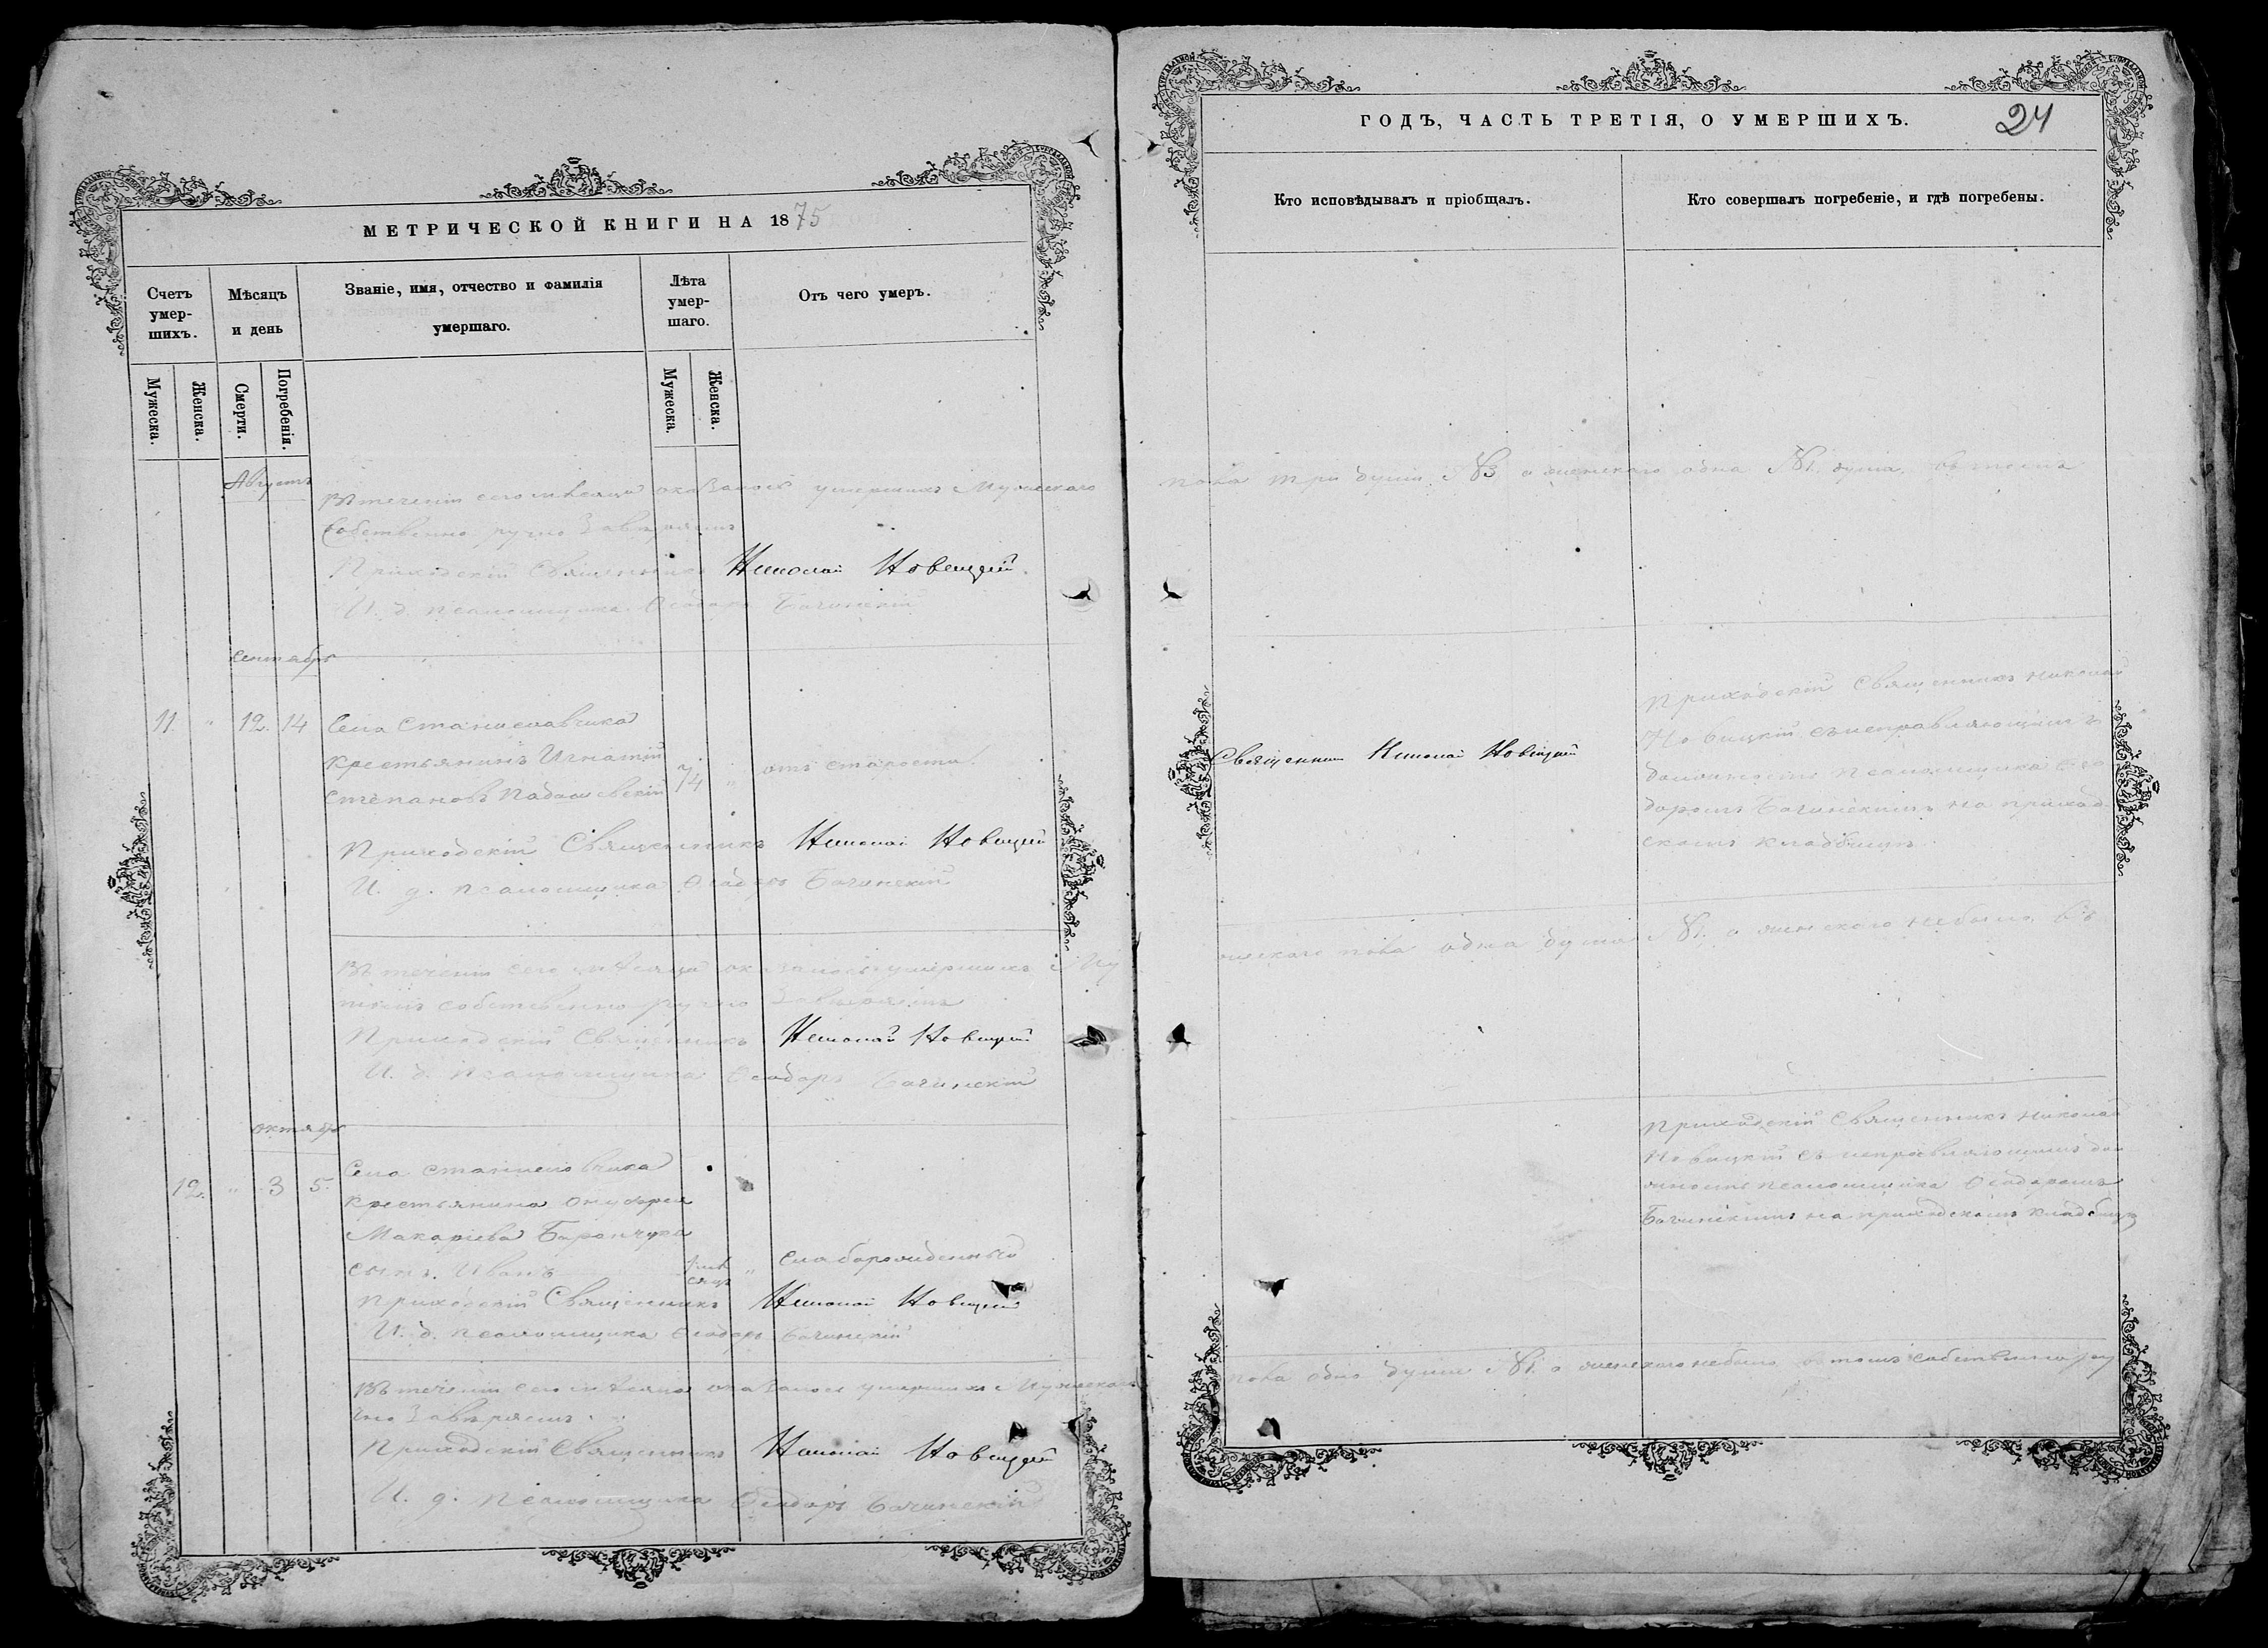 МЕТРИЧЕСКОЙ КНИГИ НА 1875
Счетъ умер-шихъ.
Мѣсяцъ и день
Званіе, имя, отчество и фамилія умершаго.
Лѣта умер-шаго.
Отъ чего умеръ.
Мужеска.
Женска.
Смерти.
Погребенія.
Мужеска.
Женска.
Августъ
Въ теченіи сего мѣсяца оказалось умершихъ Мужескаго
собственно ручно Завѣряемъ
Приходскій Священникъ Николай Новицкій
И. д. псаломщика Ѳеодоръ Бачинскій
Сентябрь
11. " 12. 14 Села Станиславчика
крестьянинъ Игнатій
Степановъ 74 " отъ старости
Приходскій Священникъ Николай Новицкій
И. д. псаломщика Ѳеодоръ Бачинскій
Въ теченіи сего мѣсяца оказалось умершихъ Му
собственно ручно Завѣряемъ
Приходскій Священникъ Николай Новицкій
И. д. псаломщика Ѳеодоръ Бачинскій
октябрь
12. " 3 5. Села Станиславчика
Крестьянина Онуфрія
Макаріева Баранчука
сынъ Иванъ " слаборожденный
Приходскій Священникъ Николай Новицкій
И. д. псаломщика Ѳеодоръ Бачинскій
Въ теченіи сего мѣсяца оказалось умершихъ Мужескаго
чно Завѣряемъ
Приходскій Священникъ Николай Новицкій
И. д. псаломщика Ѳеодоръ Бачинскій
ГОДЪ, ЧАСТЬ ТРЕТІЯ, О УМЕРШИХЪ.
24
Кто исповѣдывалъ и пріобщалъ.
Кто совершалъ погребеніе, и гдѣ погребены.
пола три души №3 а женскаго одна №1. душа въ томъ
Приходскій Священникъ Николай
Новицкій съ исправляющимъ
Священникъ Николай Новицкій
должность псаломщика Ѳео
доромъ Бачинскимъ на приход
скомъ кладбищѣ
жескаго пола одна душа №1. а женскаго небыло въ
Приходскій Священникъ Николай
Новицкій съ исправляющимъ дол
жность псаломщика Ѳеодоромъ
Бачинскимъ на приходскомъ кладбищѣ
пола одна душа №1. а женскаго небыло въ томъ собственно ру